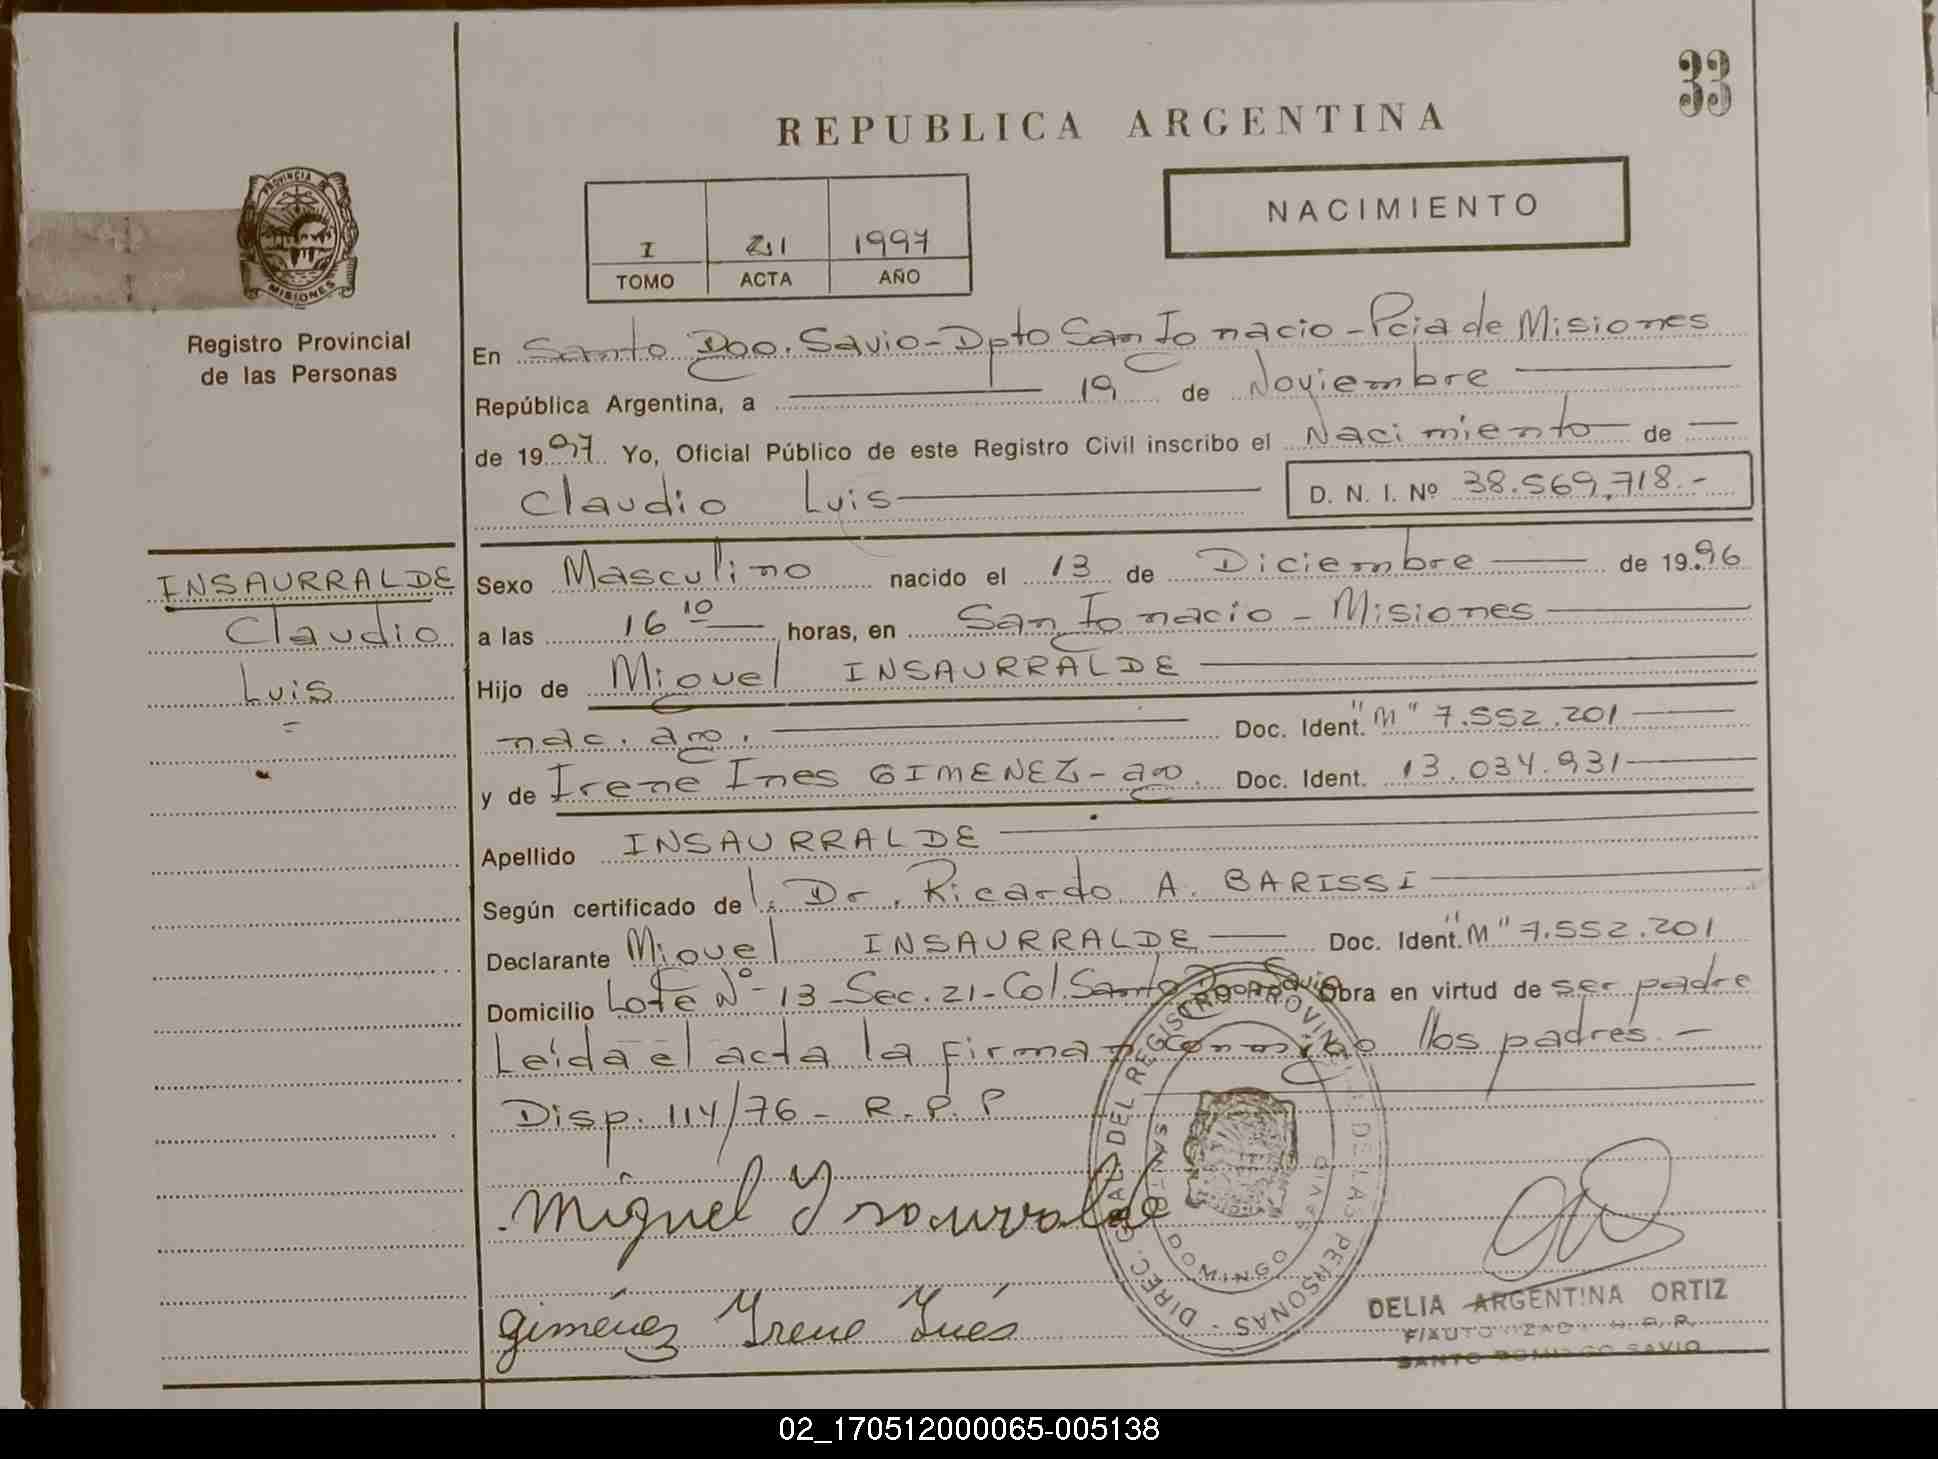 33
REPUBLICA ARGENTINA
NACIMIENTO
I 21 1997
TOMO ACTA AÑO
PROVINCIA DE
MISIONES
Registro Provincial
de las Personas
En Santo Dgo. Savio - Dpto San Ignacio - Pcia de Misiones
República Argentina, a 19 de Noviembre
de 1997 Yo, Oficial Público de este Registro Civil inscribo el Nacimiento de
Claudio Luis D. N. I. Nº 38.569.718.-
INSAURRALDE
Claudio
Luis
Sexo Masculino nacido el 13 de Diciembre de 1996
a las 16 10 horas, en San Ignacio - Misiones
Hijo de Miguel INSAURRALDE
nac. arg. Doc. Ident. "M" 7.552.201
y de Irene Ines GIMENEZ - arg. Doc. Ident. 13.034.931
Apellido INSAURRALDE
Según certificado de l. Dr. Ricardo A. BARISSI
Declarante Miguel INSAURRALDE Doc. Ident. "M" 7.552.201
Domicilio Lote Nº 13 - Sec. 21 - Col. Santo Dgo. Savio Obra en virtud de ser padre
Leída el acta la firman conmigo los padres.-
Disp. 114/76 - R.P.P
DIREC. GRAL. DEL REGISTRO PROVINCIAL DE LAS PERSONAS
DOMINGO SAVIO
Miguel Ynsaurralde
Giménez Yrene Ynés
DELIA ARGENTINA ORTIZ
SANTO DOMINGO SAVIO
02_170512000065-005138